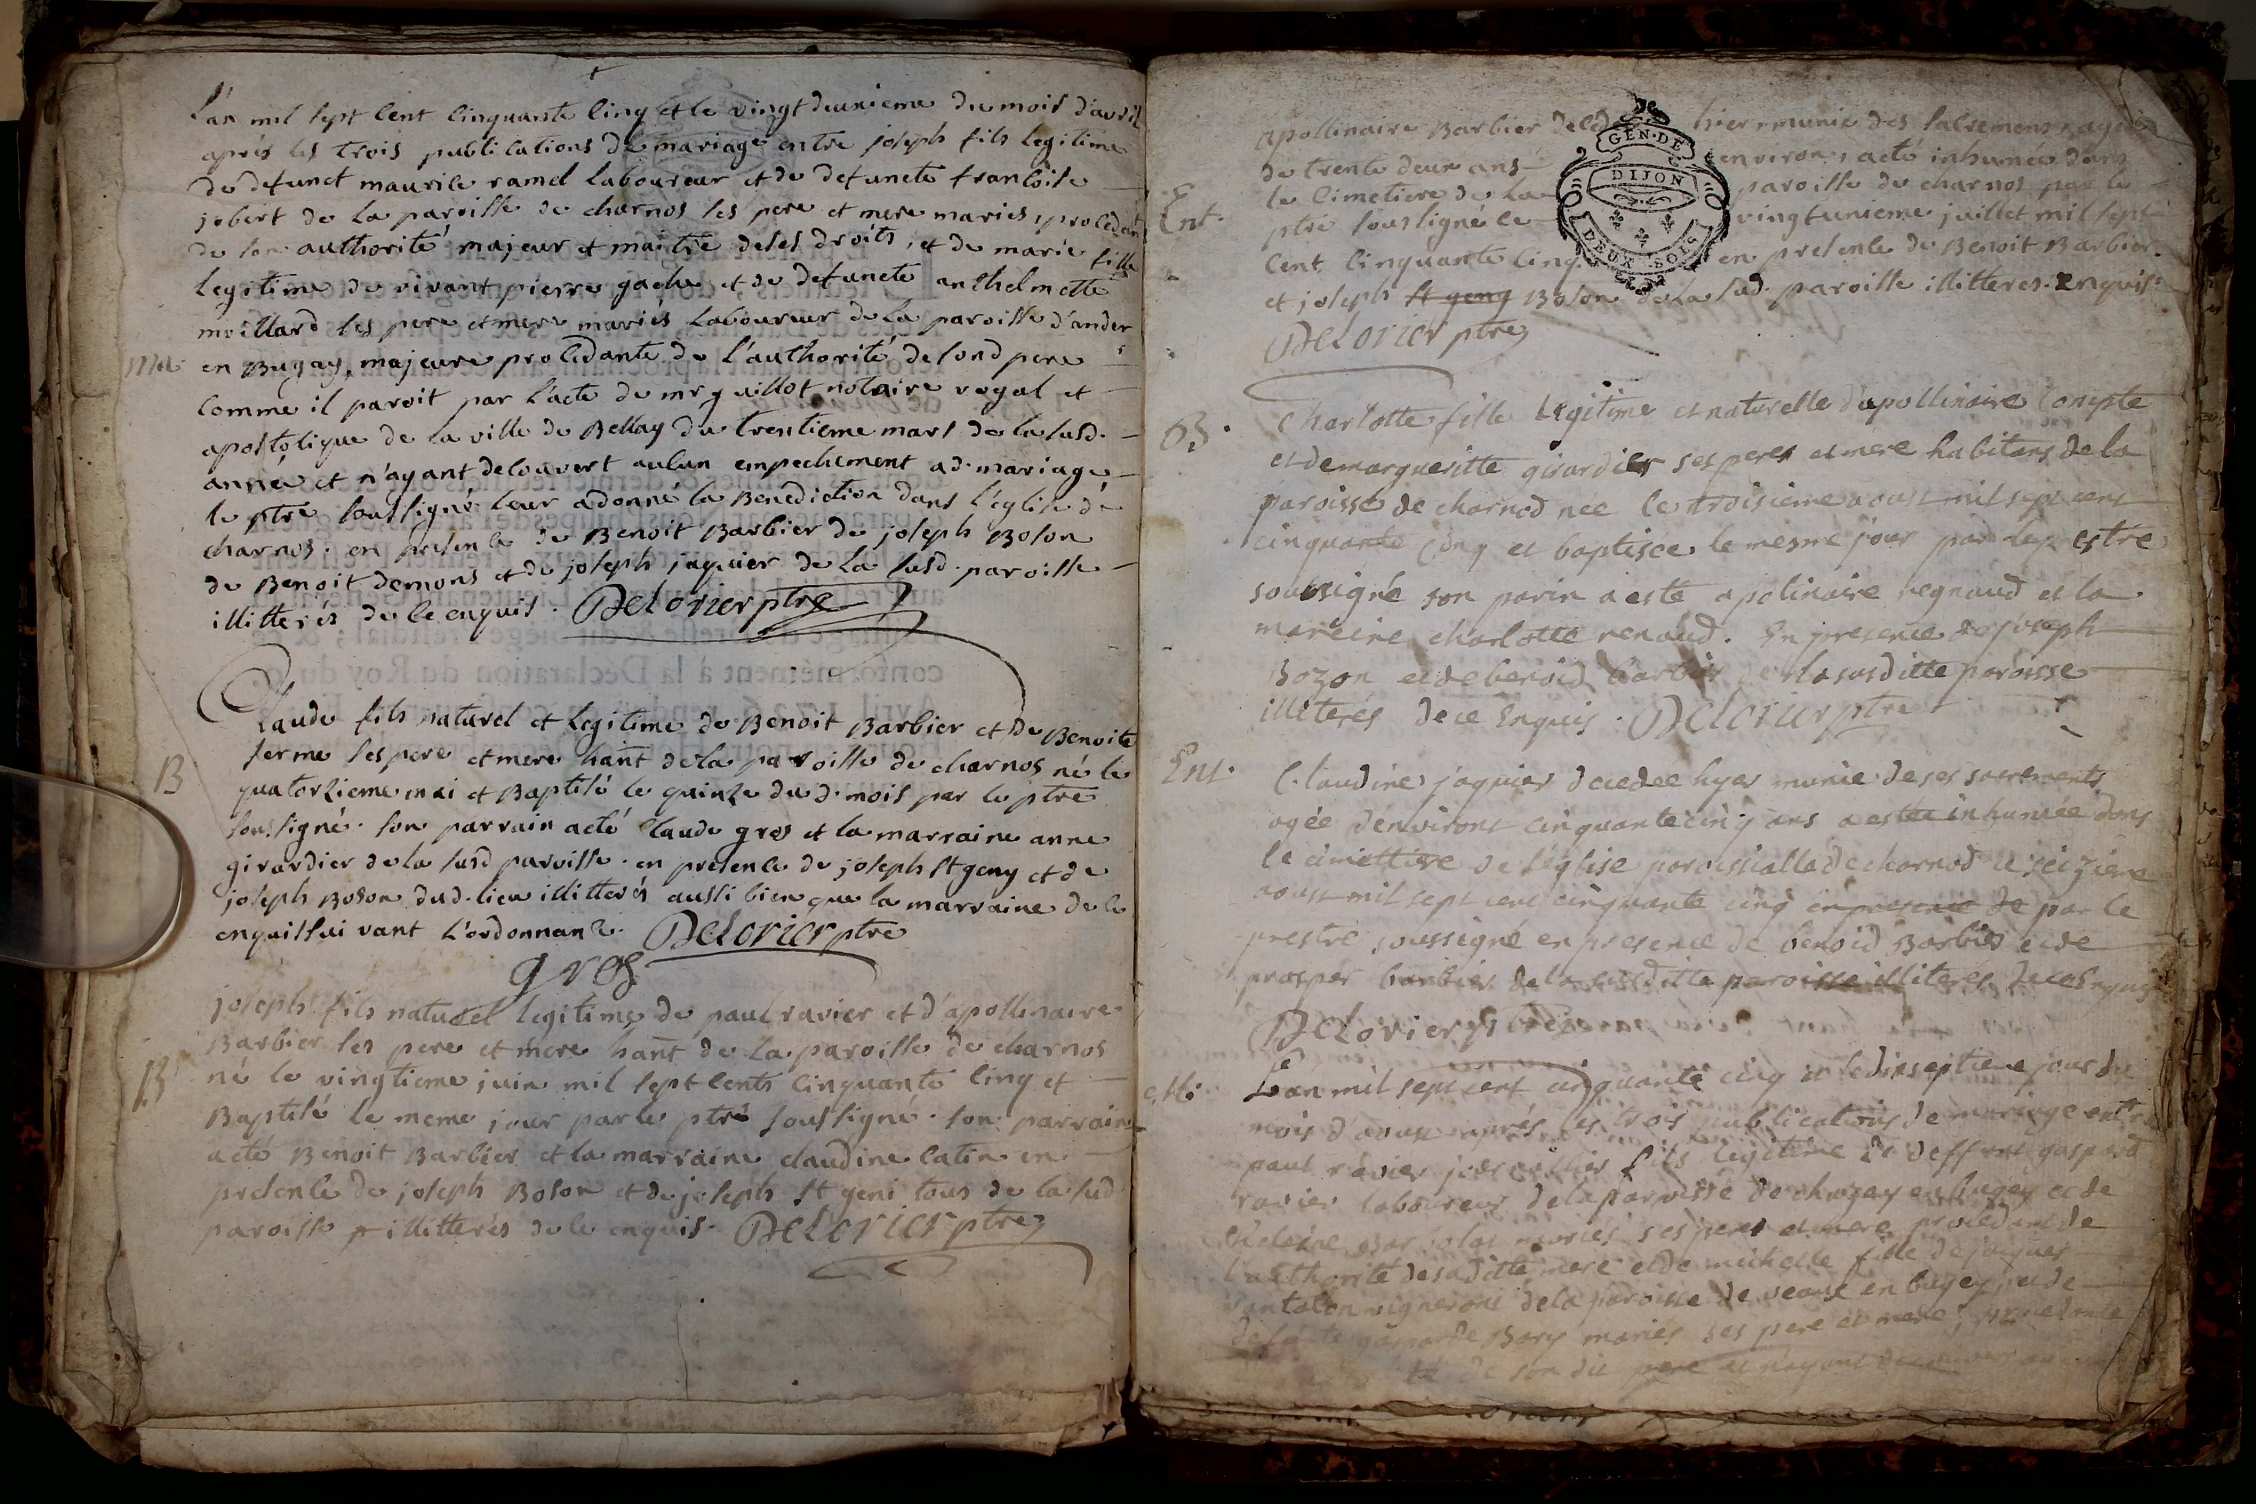 L'an mil sept cent cinquante cinq et le vingt deuxieme du mois d'avril
après les trois publications de mariage entre joseph fils legitime
de defunct maurile ramel laboureur et de defuncte francoise
jobert de la paroisse de charnos ses pere et mere maries, procedant
de son authorité majeur et maitre de ses droits, et de marie fille
legitime de vivant pierre gache et de defuncte anthelmette
millard ses pere et mere mariés laboureur de la paroisse d'ander
Ma. en Bugay, majeure procedante de l'authorité de sond pere
comme il paroit par l'acte de mr guillot notaire royal et
apostolique de la ville de Bellay du trentieme mars de la susd.
année et n'ayant decouvert aucun empechement ad. mariage
le ptre soussigné leur a donné la Benediction dans l'église de
charnos. en presence de Benoit Barbier de joseph Boson
de Benoit demons et de joseph jaquier de la susd. paroisse
illitterés de ce enquis. Delorier ptre
Claude fils naturel et legitime de Benoit Barbier et de Benoite
ferme ses pere et mere hant de la paroisse de charnos né le
B quatorzieme mai et Baptisé le quinze dud. mois par le ptre
soussigné. son parrain a eté Claude gros et la marraine anne
girardier de la susd paroisse. en presence de joseph St geny et de
joseph Boson dud. lieu illitterés aussi bien que la marraine de ce
enquis suivant l'ordonnance. Delorier ptre
gros
joseph fils naturel legitime de paul ravier et d'apollinaire
Barbier ses pere et mere hant de la paroisse de charnos
B né le vingtieme juin mil sept cents cinquante cinq et
Baptisé le meme jour par le ptre soussigné. son parrain
a eté Benoit Barbier et la marraine claudine catin en
presence de joseph Boson et de joseph St geni tous de la sud
paroisse illitterés de ce enquis. Delorier ptre
GEN. DE
DIJON
DEUX SOLS
apollinaire Barbier hier, munie des sacremens, agée
de trente deux ans environ, a eté inhumée dans
Ent. le cimetiere de la paroisse de charnos par le
ptre soussigné le vingt unieme juillet mil sept
cent cinquante cinq. en presence de Benoit Barbier
et joseph St geny Boson de la sud. paroisse illitteres. enquis
Delorier ptre
B. Charlotte fille legitime et naturelle d'apollinaire Compte
et de margueritte girardier ses peres et mere habitans de la
paroisse de charnod née le troisieme aoust mil sept cent
cinquante cinq et baptisée le mesme jour par le prestre
soussigné son parin a esté apolinaire regnaud et la
mareine charlotte renaud. En presence de joseph
Bozon et de benoid barbier de la susditte paroisse
illiterés de ce Enquis. Delorier ptre
Ent. Claudine jaquier decedee hyer munie de ses sacrements
agée d'environt cinquante cinq ans a estee inhumée dans
le cimettire de l'eglise paroissialle de charnod le seizieme
aoust mil sept cent cinquante cinq en presence de par le
prestre soussigné en presence de benoid Barbier et de
prosper barbier de la susditte paroisse illiteres de ce Enquis
Delorier
M. L'an mil sept cent cinquante cinq et le dixseptieme jour du
mois d'aoust après les trois publications de mariage entre
paul ravier fils legitime de deffunt gaspard
ravier laboureur de la paroisse de en bugey et de
mariés ses peres et mere procedant de
l'authorité de saditte mere et de michelle fille de jaques
vigneront de la paroisse de veaux en bugey et de
mariés ses pere et mere, procedante
de son dit pere et n'ayant